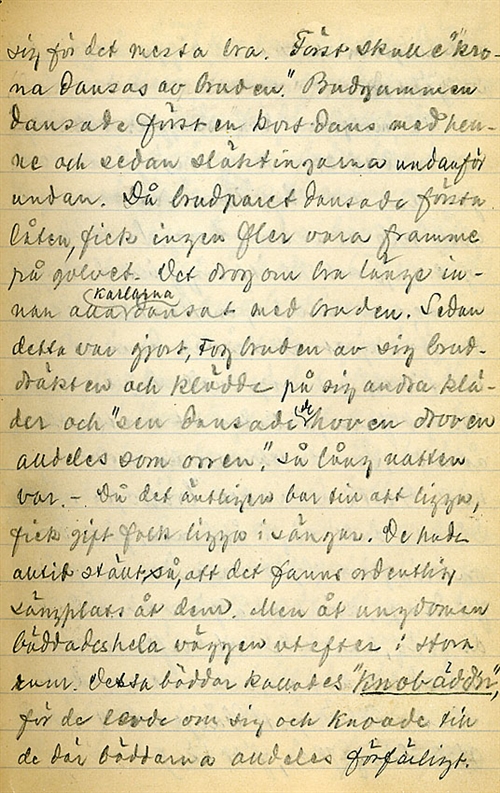 sig för det mesta bra. Först skulle "kro-
na dansas av bruden." Brudgummen
dansade först en kort dans med hen-
ne och sedan släktingarna undanför
undan. Då brudparet dansade första
låten, fick ingen fler vara framme
på golvet. Det drog om bra länge in-
nan alla karlarna dansat med bruden. Sedan
detta var gjort, tog bruden av sig brud-
dräkten och klädde på sig andra klä-
der och "sen dansade hoven droven
alldeles som orren," så lång natten
var. - Då det äntligen bar till att ligga,
fick gift folk ligga i sängar. De hade
alltid ställt så, att det fanns ordentlig
sängplats åt dem. Men åt ungdomen
bäddades hela väggen utefter i stora
rum. Dessa bäddar kallades "knobäddar",
för de levde om sig och knoade till
de där bäddarna alldeles förfärligt.